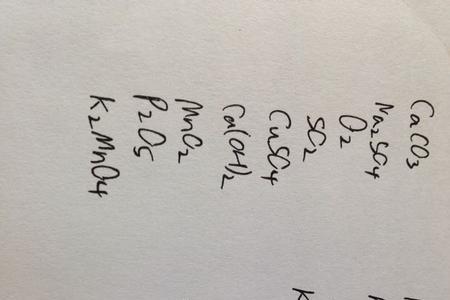 CaCO3
Na2SO4
O2
SO2
CuSO4
Ca(OH)2
MnO2
P2O5
K2MnO4